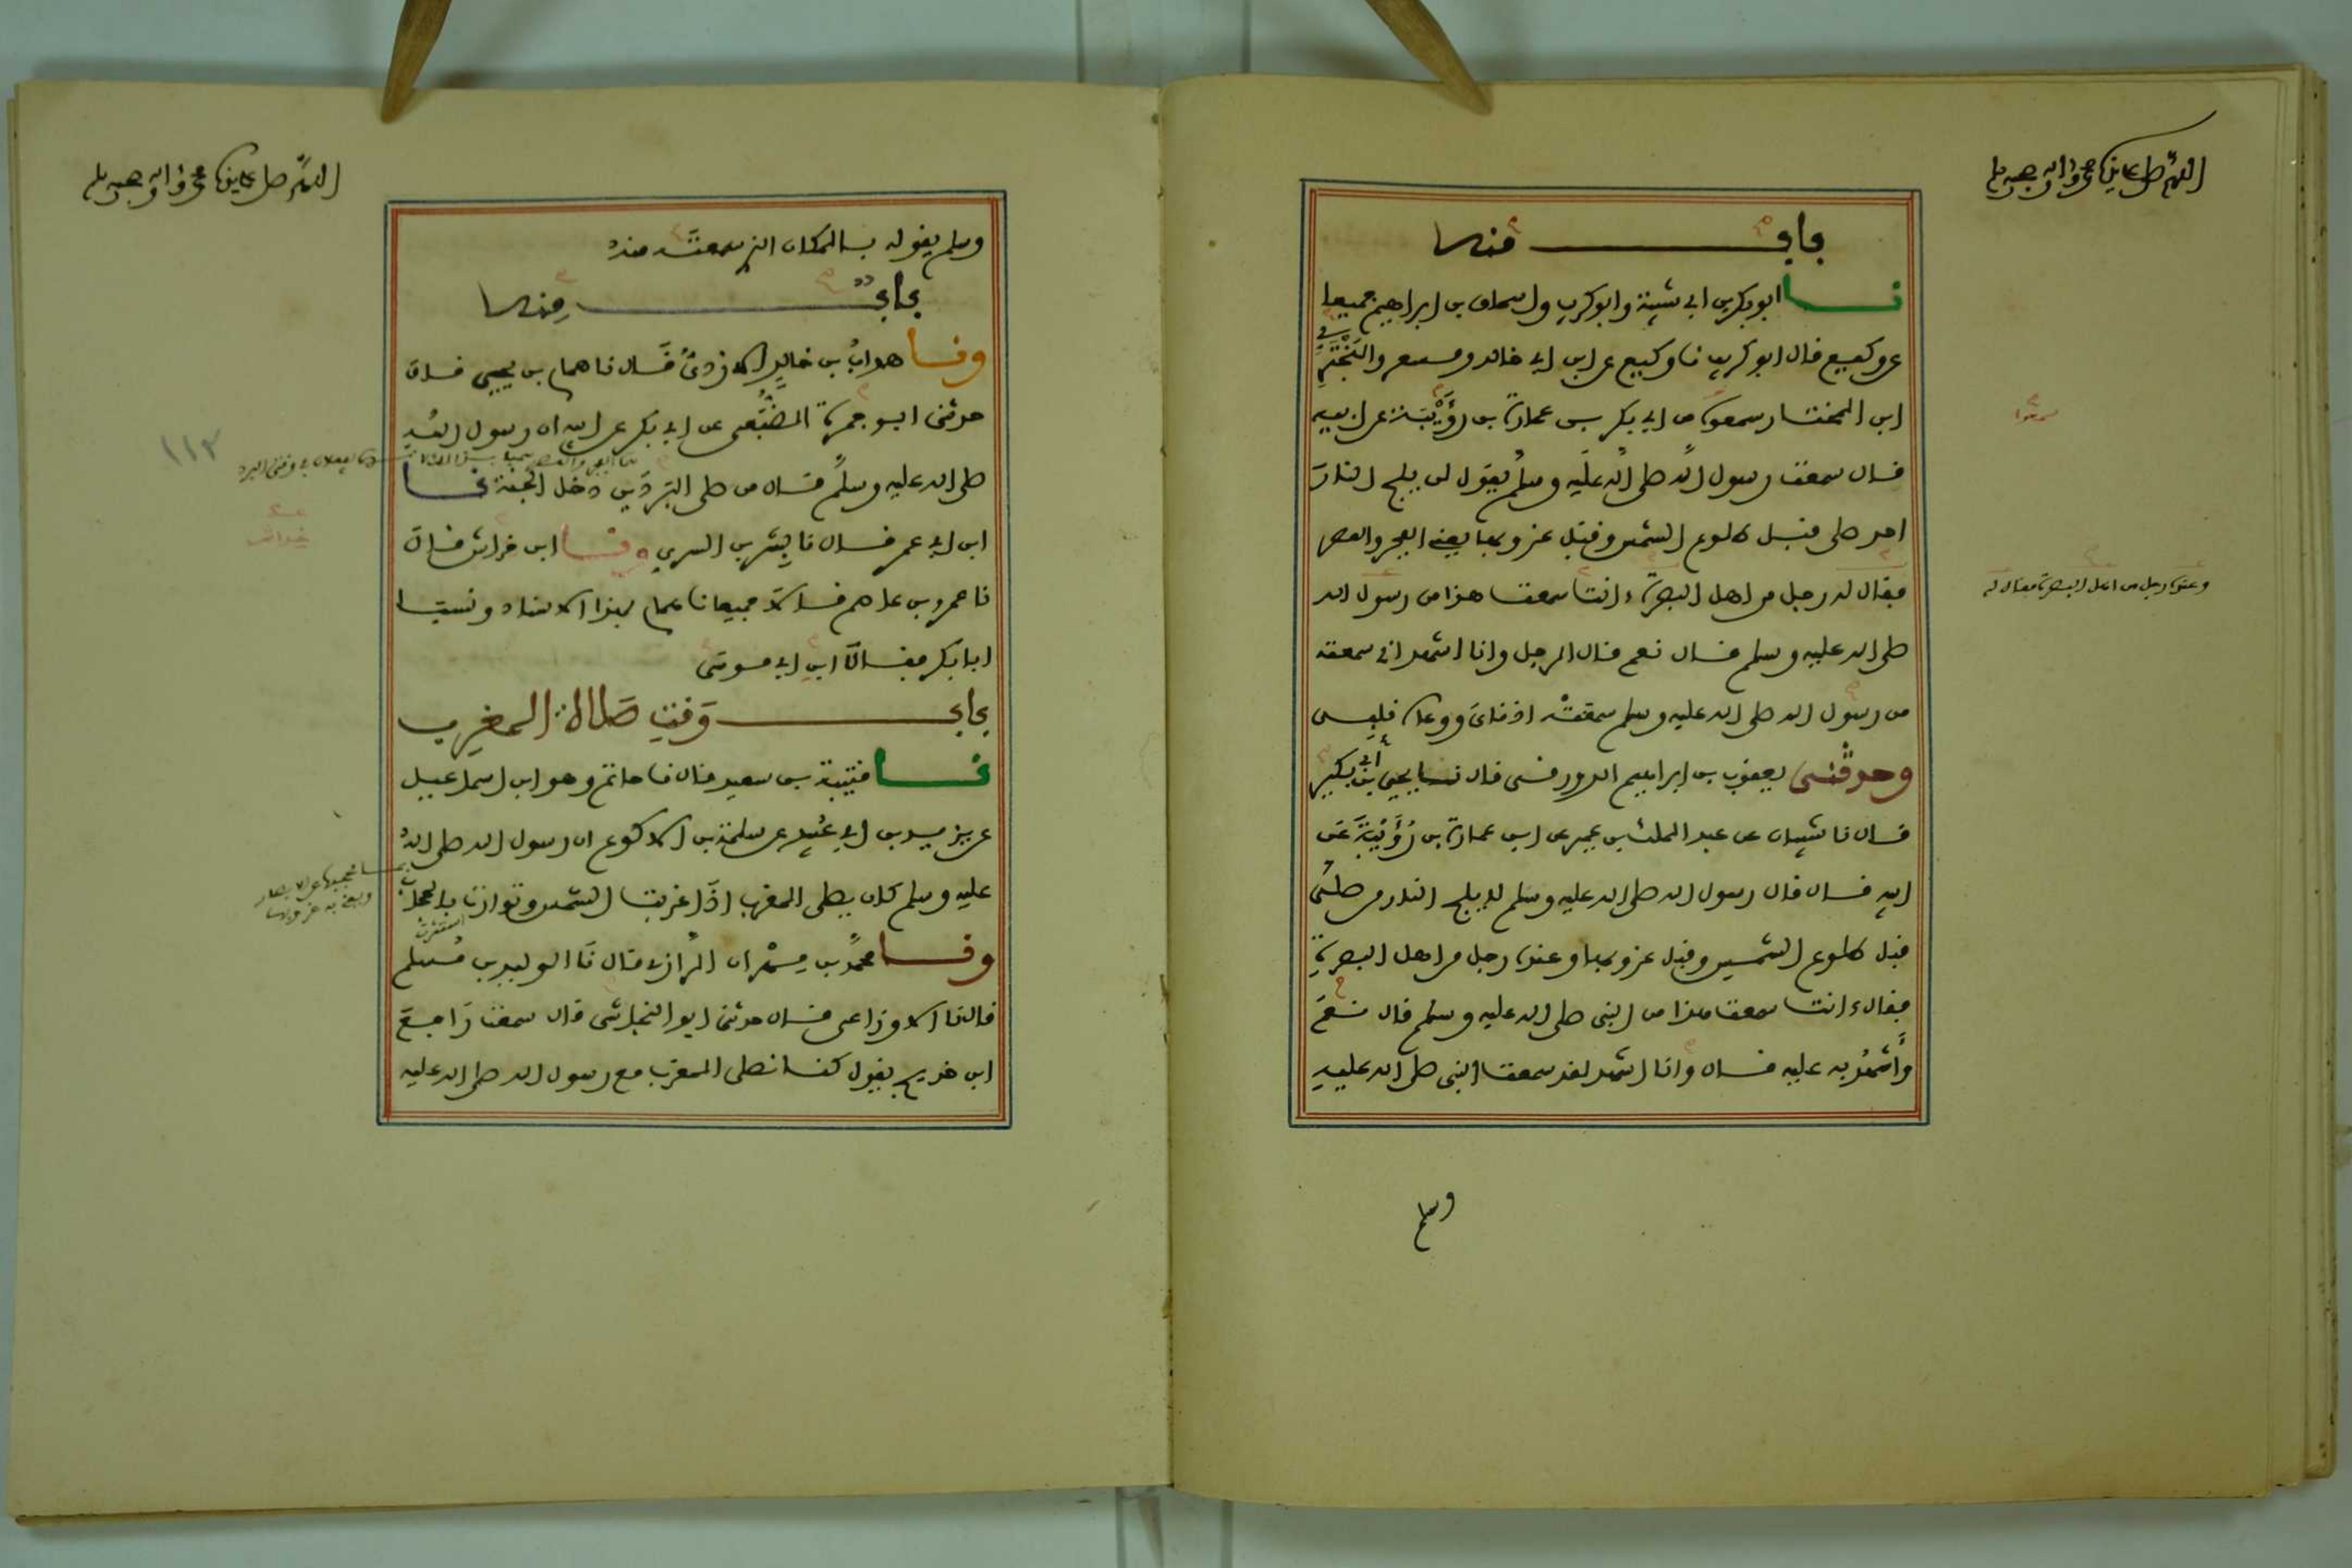 اللهم صل على سيدنا محمد وآله وصحبه وسلم
باب منه
نا ابو بكر بن ابي شيبة وابو كريب واسحاق بن ابراهيم جميعا
عن وكيع قال ابو كريب نا وكيع عن ابن ابي خالد ومسعر والبختري
ابن المختار سمعه من ابي بكر بن عمارة بن رؤيبة عن ابيه
قال سمعت رسول الله صلى الله عليه وسلم يقول لن يلج النار
احد صلى قبل طلوع الشمس وقبل غروبها يعني الفجر والعصر
فقال له رجل من اهل البصرة ءانت سمعت هذا من رسول الله
صلى الله عليه وسلم قال نعم قال الرجل وانا اشهد اني سمعته
من رسول الله صلى الله عليه وسلم سمعته اذناي ووعاه قلبي
وحدثني يعقوب بن ابراهيم الدورقي قال نا يحيى بن ابي بكير
قال نا شيبان عن عبد الملك بن عمير عن ابن عمارة بن رؤيبة عن
ابيه قال قال رسول الله صلى الله عليه وسلم لا يلج النار من صلى
قبل طلوع الشمس وقبل غروبها وعنده رجل من اهل البصرة
فقال ءانت سمعت هذا من النبي صلى الله عليه وسلم قال نعم
وأشهد به عليه قال وانا اشهد لقد سمعت النبي صلى الله عليه
وسلم
سمعوا
وعنده رجل من اهل البصرة فقال له
اللهم صل على سيدنا محمد وآله وصحبه وسلم
وسلم يقوله بالمكان الذي سمعته منه
باب منه
ونا هداب بن خالد الازدي قال نا همام بن يحيى قال
حدثني ابو جمرة الضبعي عن ابي بكر عن ابيه ان رسول الله
صلى الله عليه وسلم قال من صلى البردين دخل الجنة نا
ابن ابي عمر قال نا بشر بن السري ونا ابن خراش قال
نا عمرو بن عاصم قالا جميعا نا همام بهذا الاسناد ونسبا
ابا بكر فقالا ابن ابي موسى
باب وقت صلاة المغرب
نا قتيبة بن سعيد قال نا حاتم وهو ابن اسماعيل
عن يزيد بن ابي عبيد عن سلمة بن الاكوع ان رسول الله صلى الله
عليه وسلم كان يصلي المغرب اذا غربت الشمس وتوارت بالحجاب
ونا محمد بن مهران الرازي قال نا الوليد بن مسلم
قال نا الاوزاعي قال حدثني ابو النجاشي قال سمعت رافع
ابن خديج يقول كنا نصلي المغرب مع رسول الله صلى الله عليه
١١٣
خراش
استترت